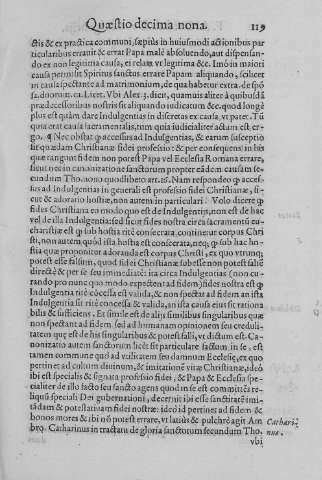 Quæstio decima nona. 119
ctis & ex practica communi, sæpius in huiusmodi actionibus par
ticularibus errauit & errat Papa malè absoluendo, aut dispensan-
do ex non legitima causa, et relaxãt vt legitima &c. Imò iu maiori
causa permisit Spiritus sanctus errare Papam aliquando, scilicet
in causa spectante ad matrimonium, de qua habetur extra. de spõ
sa. duorum. ca. Licet. Vbi Alex. 3. dicit, quamuis aliter à quibusdã
prædecessoribus nostris sit aliquando iudicatum &c. quod longè
plus est quàm dare Indulgentias in discretas ex causa, vt patet. Tũ
quia erat causa sacramentalis, tum quia iudicialiter actum est er-
go. ¶ Nec obstat ꝙ accessus ad Indulgentias, & earum susceptio
sit quædam Christianæ fidei professio: & per consequens in his
quæ tangunt fidem non potest Papa vel Ecclesia Romana errare,
sicut nec in canonizatione sanctorum propter eãdem causam se-
cundum Tho. nono quodlibeto art. 16. Nam respondeo ꝙ acces-
sus ad Indulgentias in generali est professio fidei Christianæ, si-
cut & adoratio hostiæ, non autem in particulari. Volo dicere ꝙ
fides Christiana eo modo quo est de Indulgentijs, non est de hac
vel de illa Indulgentia: sed sicut fides nostra circa sacramentũ eu-
charistiæ est ꝙ sub hostia ritè consecrata, continetur corpus Chri
sti, non autem quòd ista hostia est consecrata, neq; ꝙ sub hac ho-
stia quæ proponitur adoranda est corpus Christi, ex quo vtrunq;
potest esse falsum, quod fidei Christianæ subesse non potest falsũ
directè & per se seu immediatè: ita circa Indulgentias (non cu-
rando pro nunc quo modo expectent ad fidem) fides nostra est ꝙ
Indulgentia ritè concessa est valida, & non spectat ad fidem an ista
Indulgentia sit ritè concessa & valida, an ista causa eius sit rationa
bilis & sufficiens. Et simile est de alijs similibus singularibus quæ
non spectant ad fidem sed ad humanam opinionem seu creduli-
tatem quæ est de his singularibus & potest falli, vt dictum est. Ca-
nonizatio autem sanctorum licèt sit particulare factum in se, est
tamen commune quò ad vtilitatem seu damnum Ecclesiæ, ex quo
pertinet ad cultum diuinum, & imitationẽ vitæ Christianæ, ideò
ibi est specialis & signata professio fidei, & Papa & Ecclesia spe-
cialiter de illo facto seu sancto agens quod in se est committit re-
liquũ speciali Dei gubernationi, decernit ibi esse sanctitatẽ imi-
tãdam & potestatiuam fidei nostræ: ideò id pertinet ad fidem &
bonos mores & ibi nõ potest errare, vt latiùs & pulchrè agit Am
bro. Catharinus in tractatu de gloria sanctorum secundum Tho.
Cathari-
nus.
vbi